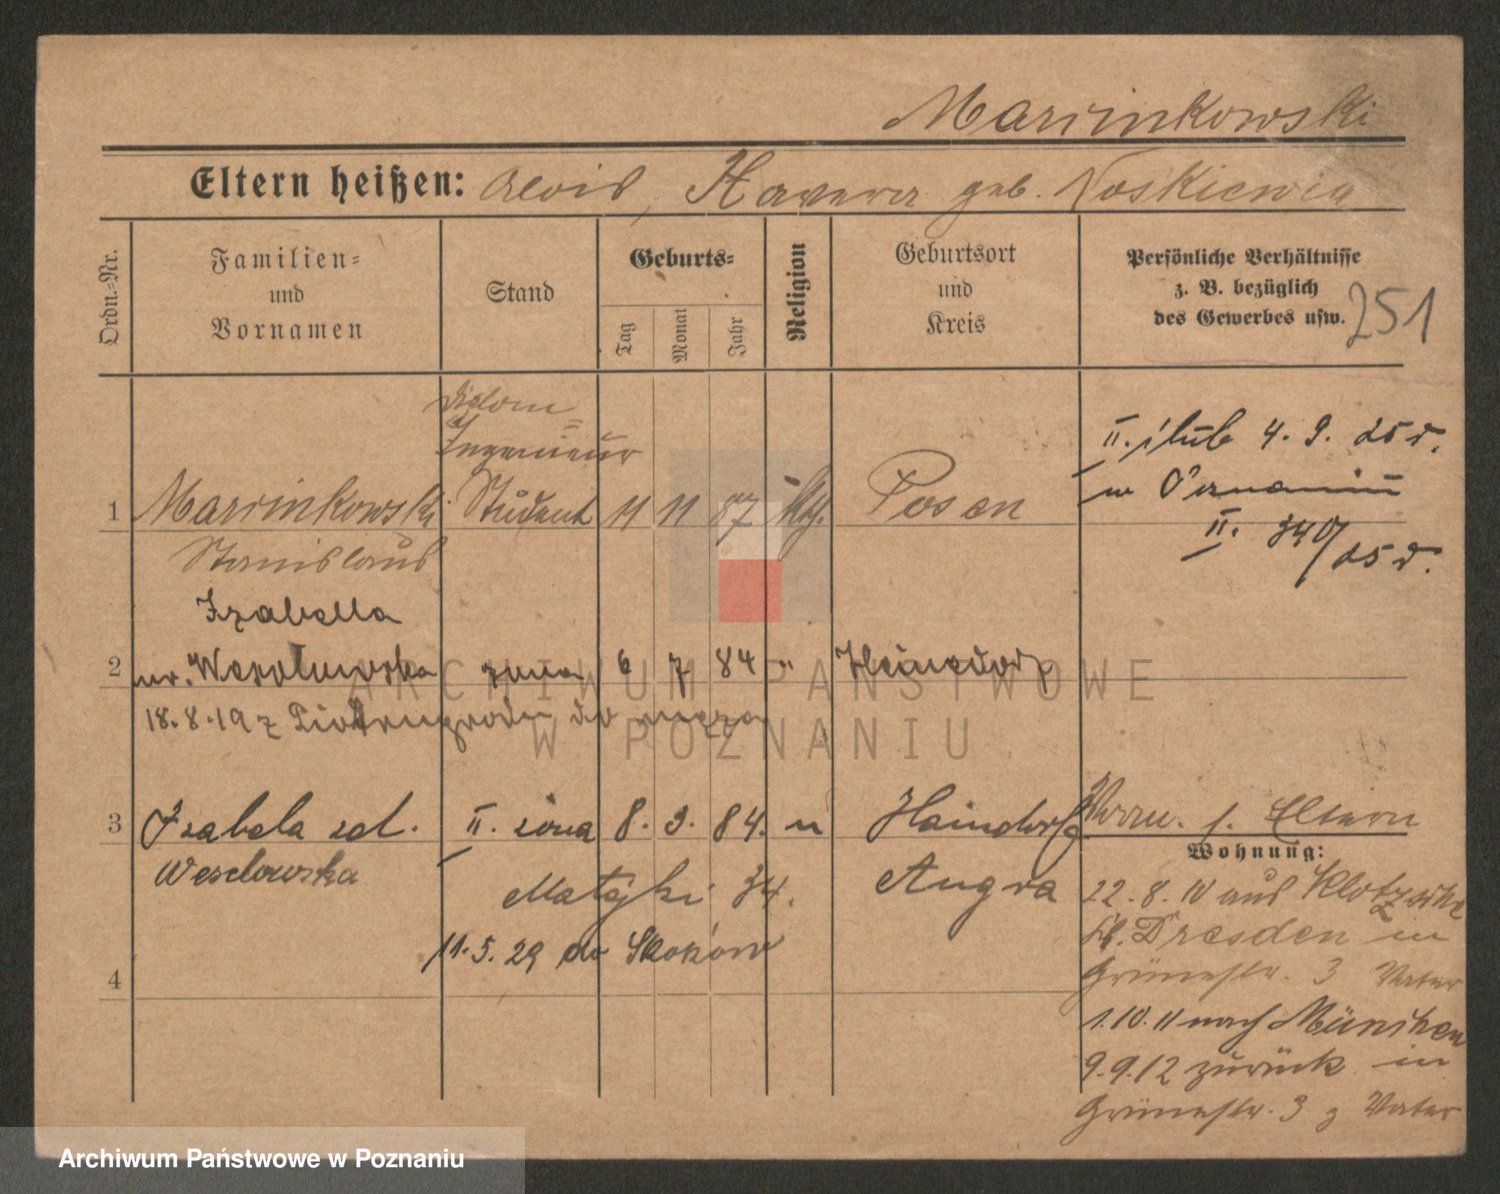 Marcinkowski
Eltern heißen: Alois, Xavera geb. Noskiewicz
251
Ordn.=Nr.
Familien=
und
Vornamen
Stand
Geburts=
Tag
Monat
Jahr
Religion
Geburtsort
und
Kreis
Persönliche Verhältnisse
z. B. bezüglich
des Gewerbes usw.
Diplom=
Ingenieur
1 Marcinkowski Student 11 11 87 kth. Posen
Stanislaus
II. ślub 4. 9. 25 r.
w Poznaniu
II. 340/25 r.
Izabella
2 ur. Wesolowska żona 6 7 84 "
18.8.19 z Piotrungrodu do męża
3 Izabela zd. II. żona 8. 9. 84. "
Weselowska
Haindorf
Angra
Matejki 34.
11.5.29 do Skoków
4
s. Eltern
Wohnung:
22.8.10 aus Klotzsche
b. Dresden in
Grünestr. 3 Vater
1.10.11 nach München
9.9.12 zurück in
Grünestr. 3 z Vater
ARCHIWUM PAŃSTWOWE
W POZNANIU
Archiwum Państwowe w Poznaniu